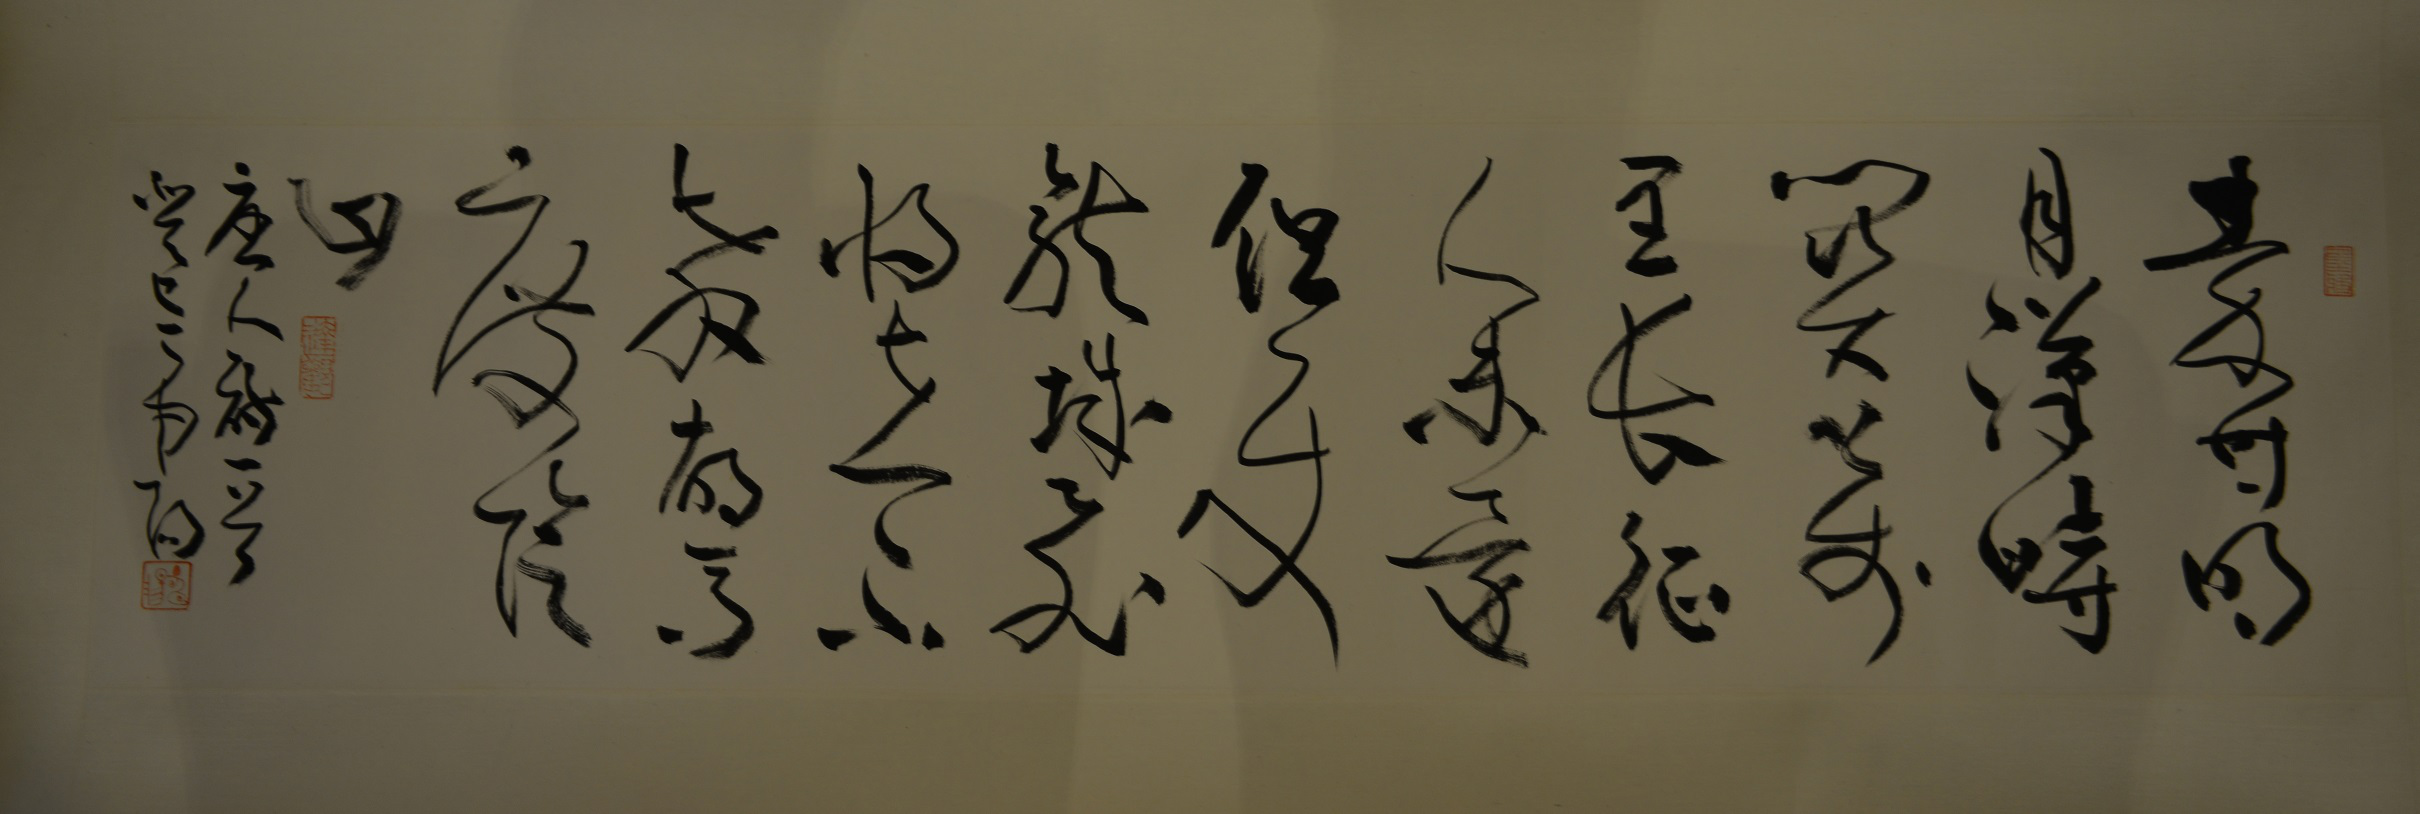 秦時明
月漢時
關萬
里長征
人未還
但使
龍城飛
將在不
教胡馬
度陰
山
唐人詩一首
癸巳